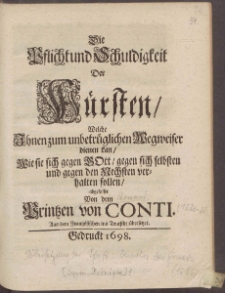 Die
Pflicht und Schuldigkeit
Der
Fürsten/
Welche
Ihnen zum unbetrüglichen Wegweiser
dienen kan/
Wie sie sich gegen GOtt/ gegen sich selbsten
und gegen den Nechsten ver-
halten sollen/
Von dem
Printzen von CONTI.
Aus dem Frantzösischen ins Teutsche übersetzet.
Gedruckt 1698.